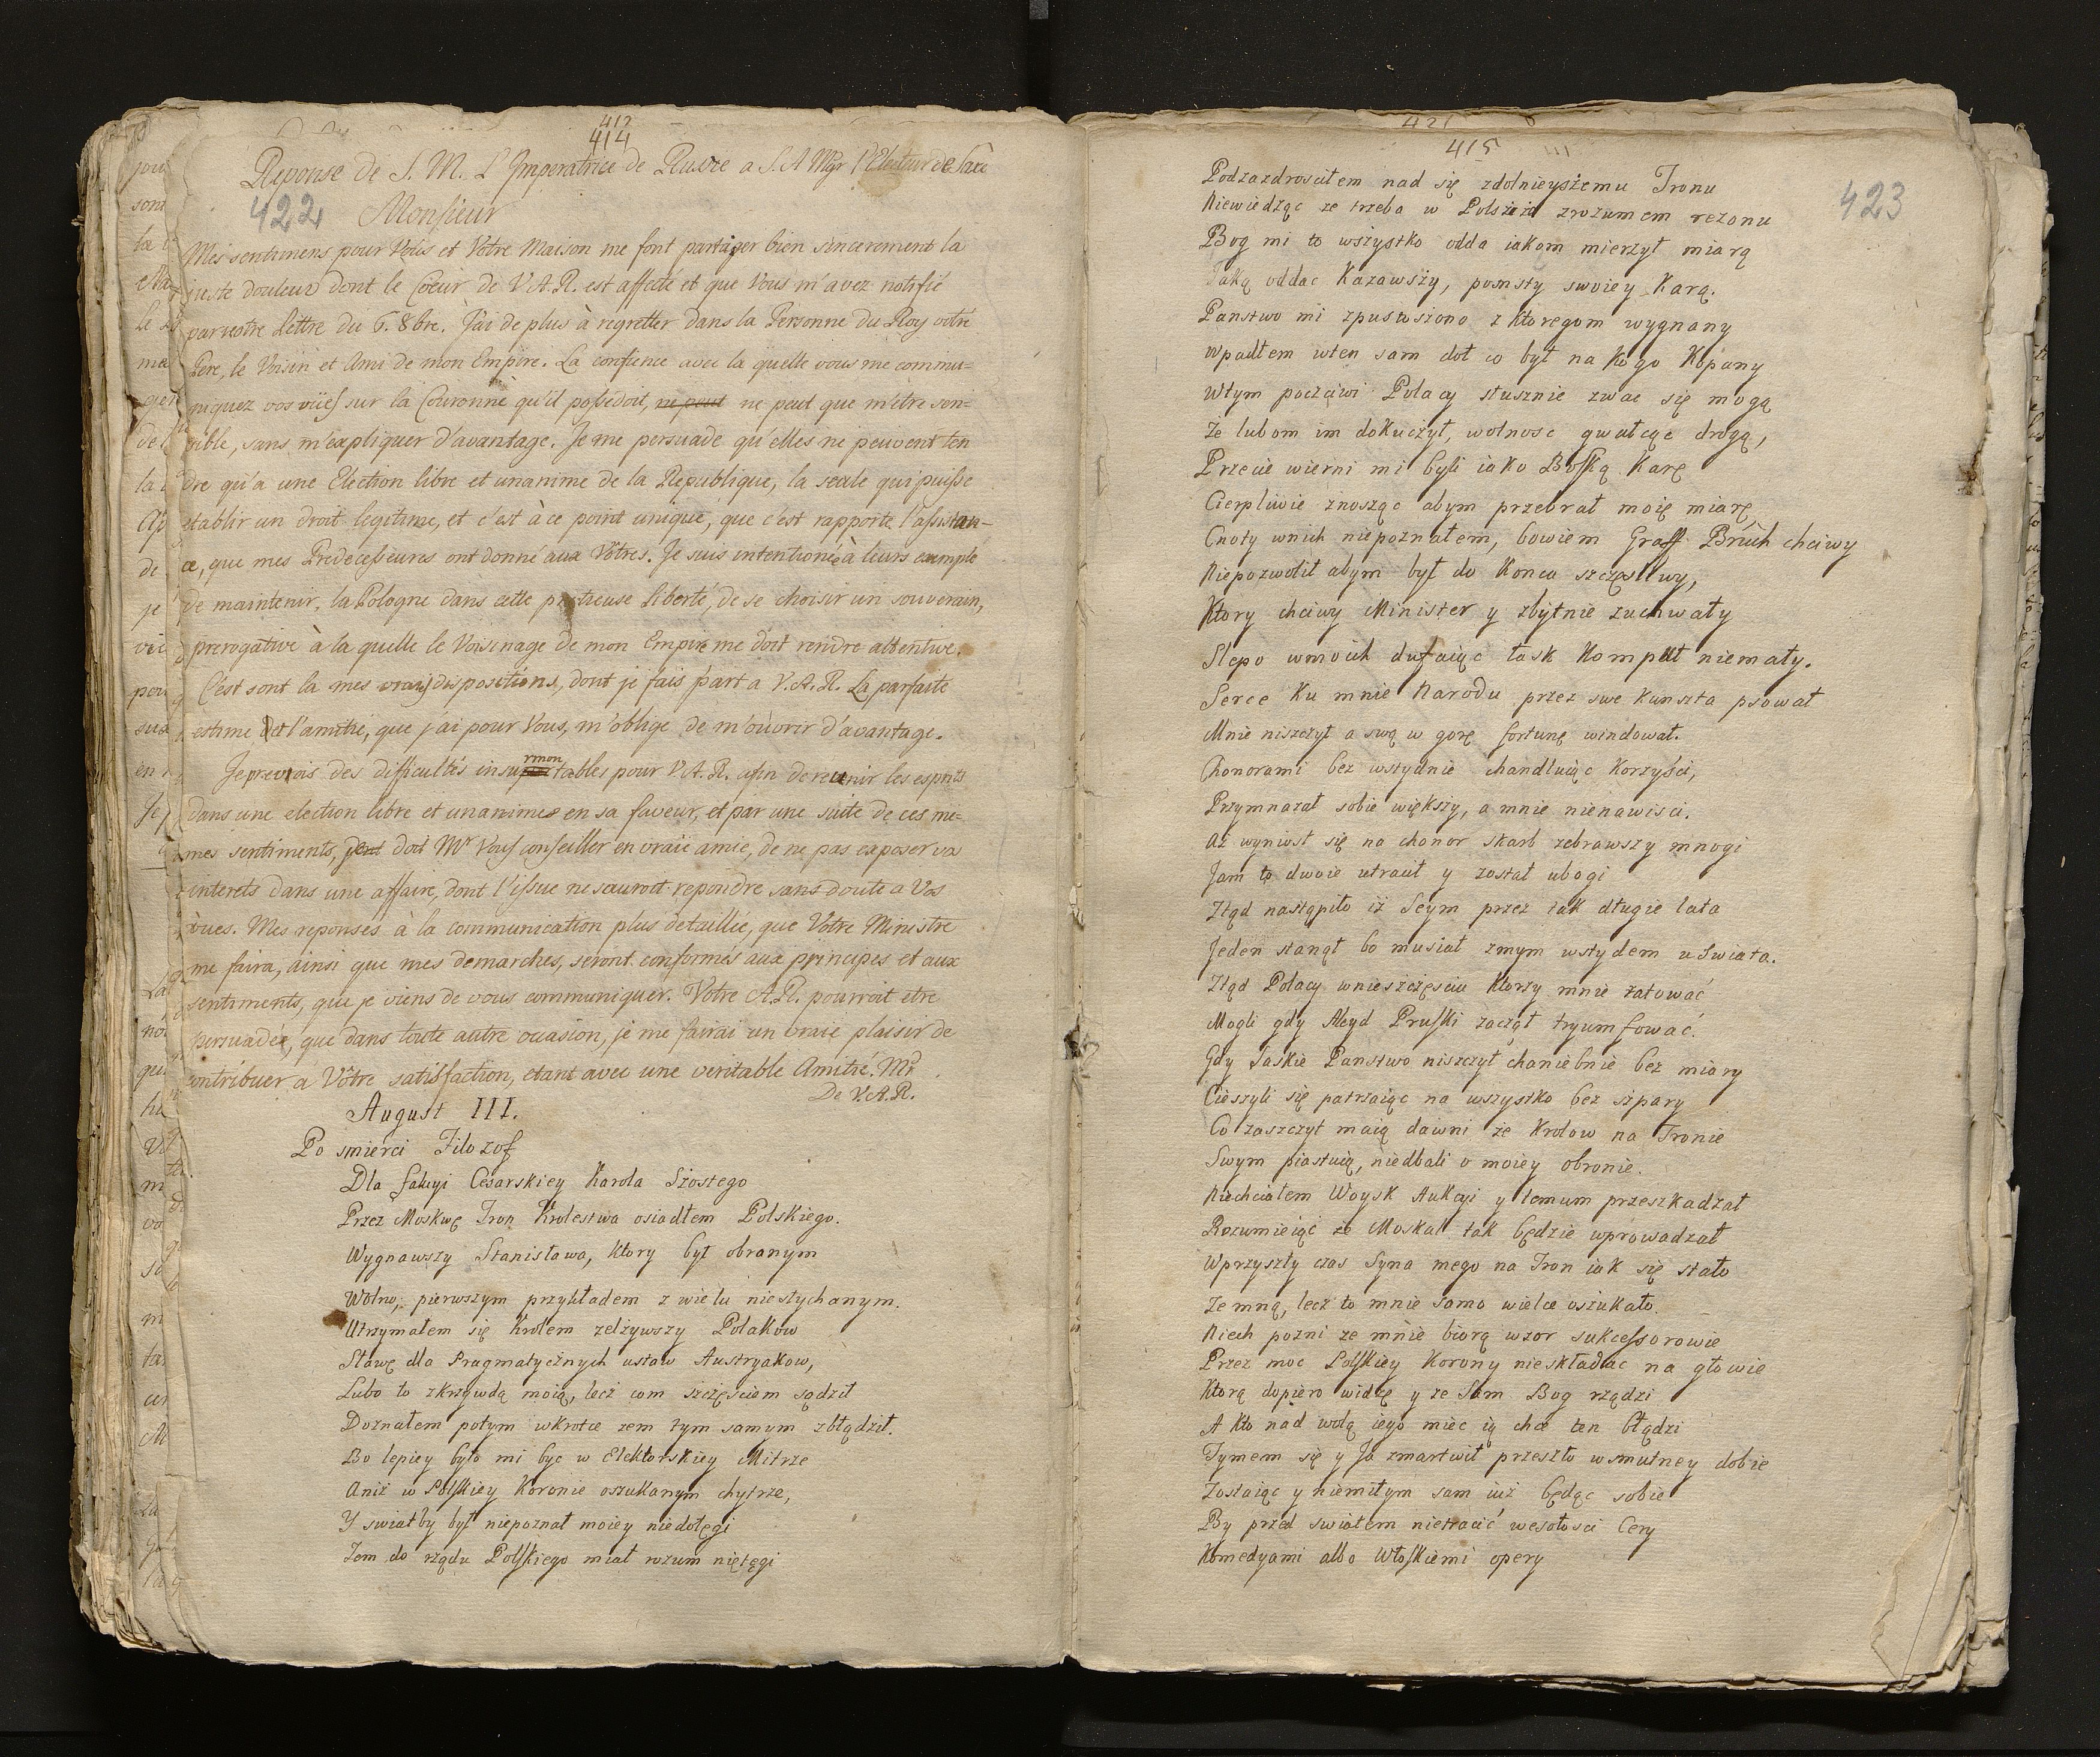 412
414
Reponse de S. M. L'Imperatrice de Russie a S. A Mgr l'Electeur de Saxe
422
Monsieur
Mes sentimens pour Vous et Votre Maison me font partager bien sincerement la
juste douleur dont le Coeur de V. A. R. est affecté et que Vous m'avez notifié
par votre Lettre du 6. 8bre. J'ai de plus à regretter dans la Personne du Roy votre
Pere, le Voisin et Ami de mon Empire. La confience avec la quelle vous me commu-
niquez vos vües sur la Couronne qu'il possedoit, ne peut ne peut que m'etre sen-
sible, sans m'expliquer d'avantage. Je me persuade qu'elles ne peuvent ten
dre qu'a une Election libre et unanime de la Republique, la seule qui puisse
etablir un droit legitime, et c'est à ce point unique, que c'est rapporte l'assistan-
ce, que mes Predecesseures ont donné aux Vôtres. Je suis intentionée à leurs exemple
de maintenir, la Pologne dans cette pretieuse liberté, de se choisir un souverain,
prerogative à la quelle le Voisinage de mon Empire me doit rendre attentive.
C'est sont la mes vrais dispositions, dont je fais part a V. A. R. La parfaite
estime et l'amitié, que j'ai pour Vous, m'oblige de m'ouvrir d'avantage.
Je prevois des difficultés insurmontables pour V. A. R. afin de reunir les esprits
dans une election libre et unanimes en sa faveur, et par une suite de ces me-
mes sentiments, doit Mr Vous conseiller en vraïe amie, de ne pas exposer vos
interets dans une affaire, dont l'issue ne sauroit repondre sans doute a Vos
vues. Mes reponses à la communication plus detaillée, que Votre Ministre
me faira, ainsi que mes demarches, seront conformés aux principes et aux
sentiments, que je viens de vous communiquer. Votre A. R. pourroit etre
persuadée, que dans toute autre ocasion, je me fairai un vraie plaisir de
contribuer a Vôtre satisfaction, etant avec une veritable Amitié. Mr
De V. A. R.
August III.
Po smierci Filozof
Dla faluyi Cesarskiey Karola Szostego
Przez Moskwę Tron Krolestwa osiadłem Polskiego.
Wygnawszy Stanisława, ktory był obranym
Wolno, pierwszym przykładem z wielu niesłychanym.
Utrzymałem się Krolem zelżywszy Polakow
Sławę dla Pragmatycznych ustaw Austryakow,
Lubo to zkrzywdą moią, lecz com szczęsciem sądził
Doznałem potym wkrotce zem tym samym zbłądził.
Bo lepiey było mi byc w Elektorskiey Mitrze
Aniż w Polskiey Koronie oszukanym chytrze,
Y swiatby był niepoznał moiey niedołęgi
Zem do rządu Polskiego miał rozum nietęgi
421
415
423
Podzazdrosciłem nad się zdolnieyszemu Tronu
Niewiedząc ze trzeba w Polszcze zrozumem rezonu
Bog mi to wszystko odda iakom mierzył miarą
Taką oddac Kazawszy, pomsty swoiey Karą.
Panstwo mi zpustoszono z ktoregom wygnany
Wpadłem wten sam doł co był na kogo Kopany
Wtym poczciwi Polacy słusznie zwac się mogą
Że lubom im dokuczył, wolnosc gwałcąc drogą,
Przecie wierni mi byli iako Boską Karę
Cierpliwie znosząc abym przebrał moię miarę
Cnoty wnich niepoznałem, bowiem Graff Brüch chciwy
Niepozwolił abym był do Konca szczęsliwy,
Ktory chciwy Minister y zbytnie zuchwały
Slepo wmoich dufaiąc łask Komput niemały.
Serce ku mnie Narodu przez swe kunszta psował
Mnie niszczył a swą w gorę fortunę windował.
Chonorami bez wstydnie chandluiąc korzyści,
Przymnazał sobie większy, a mnie nienawisci.
Aż wyniosł się na chonor skarb zebrawszy mnogi
Jam to dwoie utracił y został ubogi
Ztąd nastąpiło iż Seym przez tak długie lata
Jeden stanął bo musiał zmym wstydem u Swiata.
Ztąd Polacy wnieszczęsciu ktorzy mnie ratować
Mogli gdy Alcyd Pruski zaczął tryumfować.
Gdy Saskie Panstwo niszczył chaniebnie bez miary
Cieszyli się patrzaiąc na wszystko bez szpary
Co zaszczyt maią dawni ze Krolow na Tronie
Swym piastuią, niedbali o moiey obronie.
Niechciałem Woysk Aukcyi y temum przeszkadzał
Rozumieiąc ze Moskal tak będzie wprowadzał
Wprzyszły czas Syna mego na Tron iak się stało
Ze mną, lecz to mnie samo wielce oszukało.
Niech pozni ze mnie biorą wzor sukcessorowie
Przez moc Polskiey Korony nieskładac na głowie
Ktorą dopiero widzę y ze Sam Bog rządzi
A kto nad wolą iego miec ią chce ten błądzi
Tymem się y Ja zmartwił przeszło wsmutney dobie
Zostaiąc y niemiłym sam iuż będąc sobie
By przed swiatem nietracić wesołosci Cery
Komedyami albo Włoskiemi opery